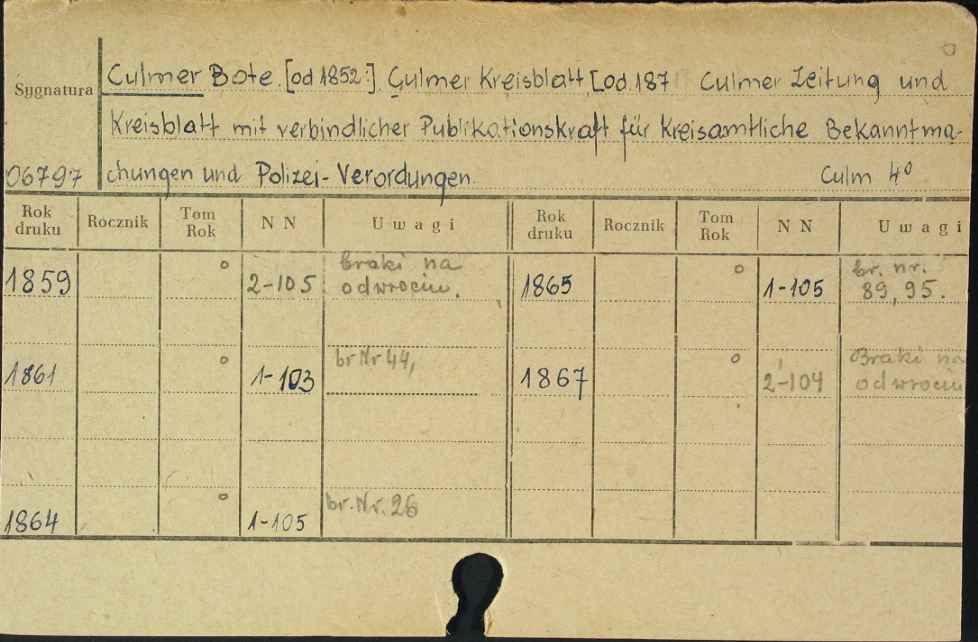 Sygnatura
06797
Culmer Bote. [od 1852:] Culmer Kreisblatt [od 187 Culmer Zeitung und
Kreisblatt mit verbindlicher Publikationskraft für Kreisamtliche Bekanntma-
chungen und Polizei-Verordungen. Culm 4°
Rok druku Rocznik Tom Rok NN Uwagi Rok druku Rocznik Tom Rok NN Uwagi
1859 ° 2-105 braki na odwrociu. 1865 ° 1-105 br. nr. 89, 95.
1861 ° 1-103 br Nr 44, 1867 ° 2-104 Braki na odwrociu
1864 ° 1-105 br. Nr. 26